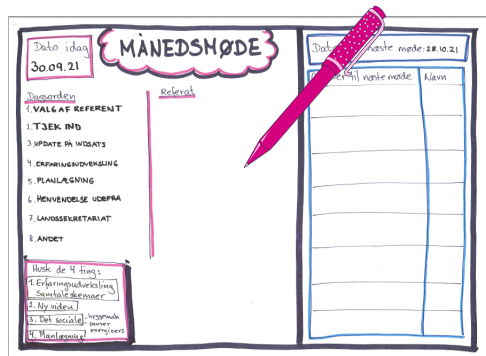 Dato idag
30.09.21
MÅNEDSMØDE
Dagsorden
1. VALG AF REFERENT
2. TJEK IND
3. UPDATE PÅ INDSATS
4. ERFARINGSUDVEKSLING
5. PLANLÆGNING
6. HENVENDELSE UDEFRA
7. LANDSSEKRETARIAT
8. ANDET
Referat
Husk de 4 ting:
1. Erfaringsudveksling
Samtaleskemaer
2. Ny viden
3. Det sociale - hyggesnak
pauser
energizers
4. Planlægning
næste møde: 28.10.21
til næste møde
Navn